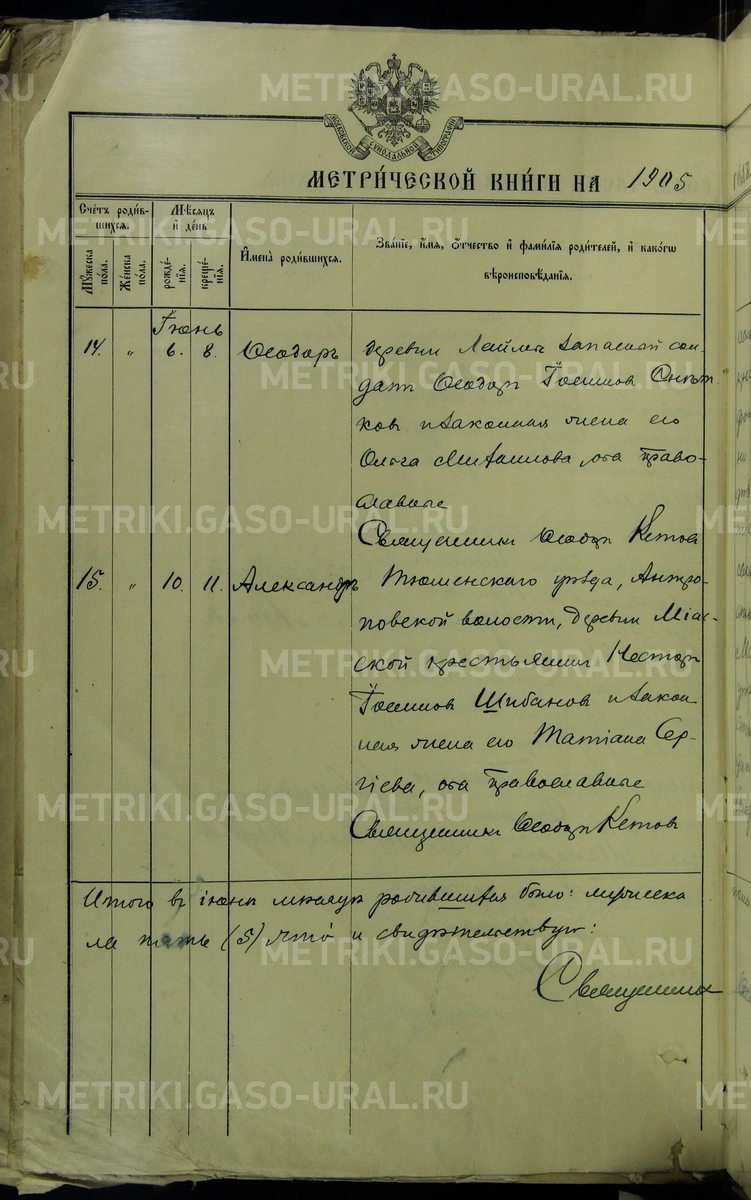 METRIKI.GASO-URAL.RU
МОСКОВСКОЙ СѴНОДАЛЬНОЙ ТИПОГРАФІИ
МЕТРИ́ЧЕСКОЙ КНИ́ГИ НА 1905
Сче́тъ роди́в-
шихся.
Мꙋжеска по́ла.
Же́нска по́ла.
Мѣсяцъ
и҆ де́нь
рожде́-
нїѧ.
креще́-
нїѧ.
И҆мена̀ роди́вшихсѧ.
Зва́нїе, и҆́мѧ, ѻ҆́тчество и҆ фами́лїѧ роди́телей, и҆ како́гѡ
вѣроисповѣ́данїѧ.
Іюнь
14. „ 6. 8. Ѳеодоръ деревни запасной сол-
датъ Ѳеодоръ Іосифовъ
ковъ и законная жена его
Ольга оба право-
славные
Священникъ Ѳеодоръ Кетовъ
15. „ 10. 11. Александръ Тюменскаго уѣзда,
повской волости, деревни Міас-
ской крестьянинъ Несторъ
Іосифовъ Шибановъ и закон
ная жена его Татіана Сер-
гіева, оба православные
Священникъ Ѳеодоръ Кетовъ
Итого въ іюнѣ мѣсяцѣ родившихся было: мужеска
па пять (5) что и свидѣтельствую:
Священникъ